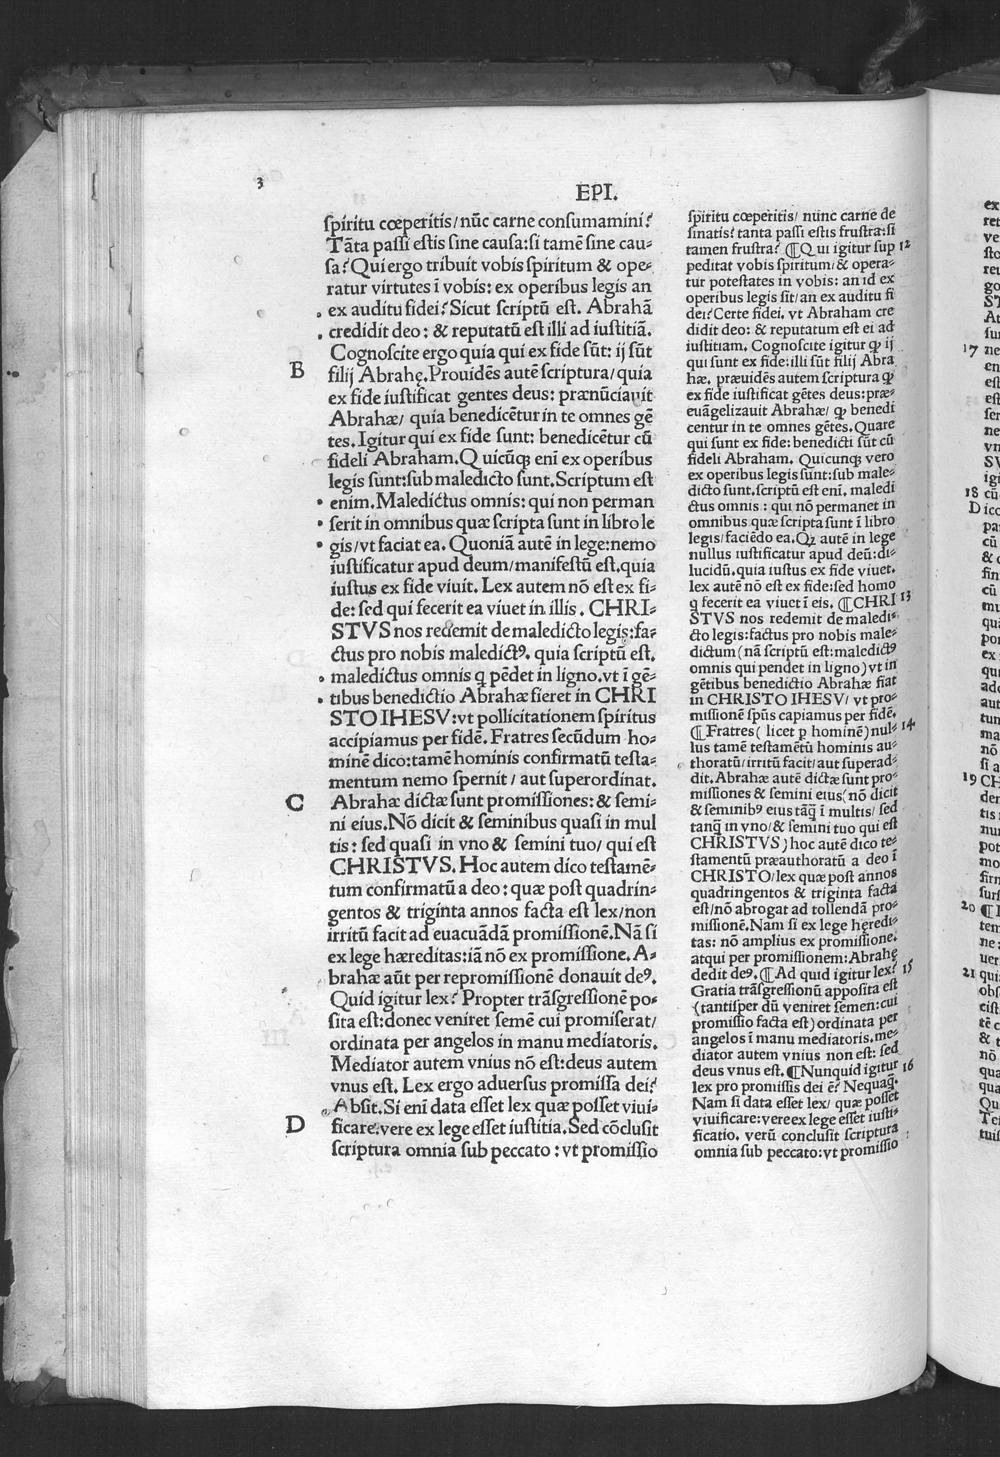 3
EPI.
ſpiritu cœperitis/ nūc carne conſumamini?
Tāta paſſi eſtis ſine cauſa:ſi tamē ſine cau-
ſa? Qui ergo tribuit vobis ſpiritum & ope-
ratur virtutes ī vobis: ex operibus legis an
ex auditu fidei? Sicut ſcriptū eſt. Abrahā
credidit deo: & reputatū eſt illi ad iuſtitiā.
Cognoſcite ergo quia qui ex fide ſūt: ij ſūt
B
filij Abrahę. Prouidēs autē ſcriptura/ quia
ex fide iuſtificat gentes deus: prænūciauit
Abrahæ/ quia benedicētur in te omnes gē
tes. Igitur qui ex fide ſunt: benedicētur cū
fideli Abraham. Quicūqꝫ eni ex operibus
legis ſunt:ſub maledicto ſunt. Scriptum eſt
enim. Maledictus omnis: qui non perman
ſerit in omnibus quæ ſcripta ſunt in libro le
gis/ vt faciat ea. Quoniā autē in lege:nemo
iuſtificatur apud deum/ manifeſtū eſt, quia
iuſtus ex fide viuit. Lex autem nō eſt ex fi-
de: ſed qui fecerit ea viuet in illis. CHRI-
STVS nos redemit de maledicto legis:fa-
ctus pro nobis maledictꝰ. quia ſcriptū eſt.
maledictus omnis q pēdet in ligno. vt ī gē-
tibus benedictio Abrahæ fieret in CHRI
STO IHESV: vt pollicitationem ſpiritus
accipiamus per fidē. Fratres ſecūdum ho-
minē dico: tamē hominis confirmatū teſta-
mentum nemo ſpernit / aut ſuperordinat.
C
Abrahæ dictæ ſunt promiſſiones: & ſemi-
ni eius. Nō dicit & ſeminibus quaſi in mul
tis: ſed quaſi in vno & ſemini tuo/ qui eſt
CHRISTVS. Hoc autem dico teſtamē-
tum confirmatū a deo: quæ poſt quadrin-
gentos & triginta annos facta eſt lex/ non
irritū facit ad euacuādā promiſſionē. Nā ſi
ex lege hæreditas:iā nō ex promiſſione. A-
brahæ aūt per repromiſſionē donauit deꝰ.
Quid igitur lex? Propter trāſgreſſionē po-
ſita eſt:donec veniret ſemē cui promiſerat/
ordinata per angelos in manu mediatoris.
Mediator autem vnius nō eſt: deus autem
vnus eſt. Lex ergo aduerſus promiſſa dei?
Abſit. Si enī data eſſet lex quæ poſſet viui-
D
ficare: vere ex lege eſſet iuſtitia. Sed cōcluſit
ſcriptura omnia ſub peccato : vt promiſſio
ſpiritu cœperitis/ nunc carne de
ſinatis? tanta paſſi eſtis fruſtra:ſi
tamen fruſtra? ¶ Qui igitur ſup 12
peditat vobis ſpiritum/ & opera-
tur poteſtates in vobis: an id ex
operibus legis ſit/ an ex auditu fi
dei? Certe fidei. vt Abraham cre
didit deo: & reputatum eſt ei ad
iuſtitiam. Cognoſcite igitur ꝙ ij
qui ſunt ex fide:illi ſūt filij Abra
hæ. præuidēs autem ſcriptura ꝙ
ex fide iuſtificat gētes deus: præ-
euāgelizauit Abrahæ/ ꝙ benedi
centur in te omnes gētes. Quare
qui ſunt ex fide: benedicti ſūt cū
fideli Abraham. Quicunqꝫ vero
ex operibus legis ſunt:ſub male-
dicto ſunt. ſcriptū eſt eni. maledi
ctus omnis : qui nō permanet in
omnibus quæ ſcripta ſunt ī libro
legis/ faciēdo ea. Qꝫ autē in lege
nullus iuſtificatur apud deū: di-
lucidū. quia iuſtus ex fide viuet.
lex autē nō eſt ex fide:ſed homo
q fecerit ea viuet ī eis. ¶ CHRI 13
STVS nos redemit de maledi-
cto legis: factus pro nobis male-
dictum (nā ſcriptū eſt:maledictꝰ
omnis qui pendet in ligno) vt in
gētibus benedictio Abrahæ fiat
in CHRISTO IHESV/ vt pro-
miſſionē ſpūs capiamus per fidē.
¶ Fratres ( licet p hominē) nul- 14
lus tamē teſtamētū hominis au-
thoratū/ irritū facit/ aut ſuperad-
dit. Abrahæ autē dictæ ſunt pro-
miſſiones & ſemini eius( nō dicit
& ſeminibꝰ eius tāq̄ ī multis/ ſed
tanq̄ in vno/ & ſemini tuo qui eſt
CHRISTVS) hoc autē dico te-
ſtamentū præauthoratū a deo ī
CHRISTO/ lex quæ poſt annos
quadringentos & triginta facta
eſt/ nō abrogat ad tollendā pro-
miſſionē. Nam ſi ex lege hęredi-
tas: nō amplius ex promiſſione.
atqui per promiſſionem: Abrahę
dedit deꝰ. ¶ Ad quid igitur lex? 15
Gratia trāſgreſſionū appoſita eſt
(tantiſper dū veniret ſemen: cui
promiſſio facta eſt) ordinata per
angelos ī manu mediatoris. me-
diator autem vnius non eſt: ſed
deus vnus eſt. ¶ Nunquid igitur 16
lex pro promiſſis dei ē? Nequaq̄.
Nam ſi data eſſet lex/ quæ poſſet
viuificare: vere ex lege eſſet iuſti-
ficatio. verū concluſit ſcriptura
omnia ſub peccato: vt promiſſio
17
18
19
20
21